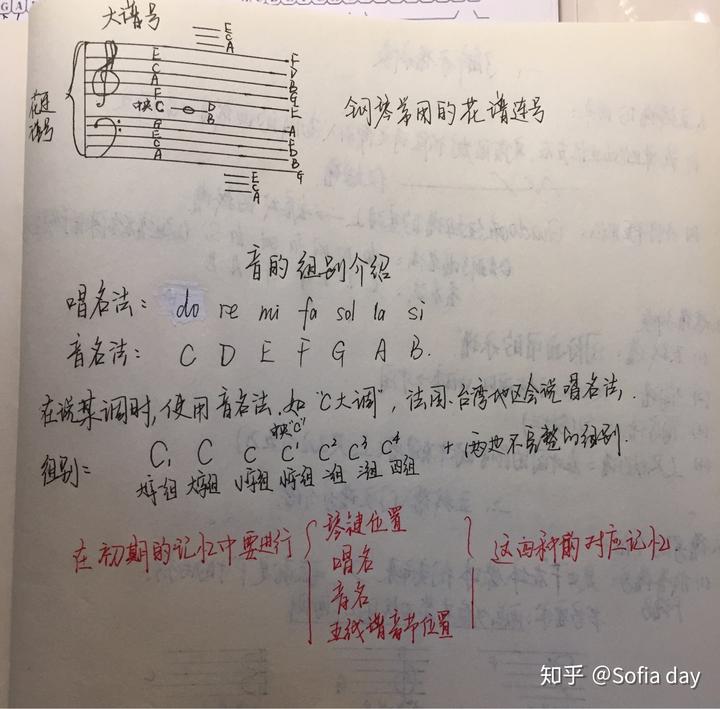 GA
大谱号
E
C
A
E
C
A
F
中央C
D
B
G
E
C
A
F
D
B
G
E
A
F
D
B
G
E
C
A
花连
谱号
钢琴常用的花谱连号
音的组别介绍
唱名法: do re mi fa sol la si
音名法: C D E F G A B.
在说某调时,使用音名法,如"C大调",法国、台湾地区会说唱名法.
中央"C"
组别: C₁ C c c¹ c² c³ c⁴ + 两边不完整的组别.
大字一组 大字组 小字组 小字一组 二组 三组 四组
在初期的记忆中要进行
琴键位置
唱名
音名
五线谱音节位置
这四种的对应记忆.
知乎 @Sofia day